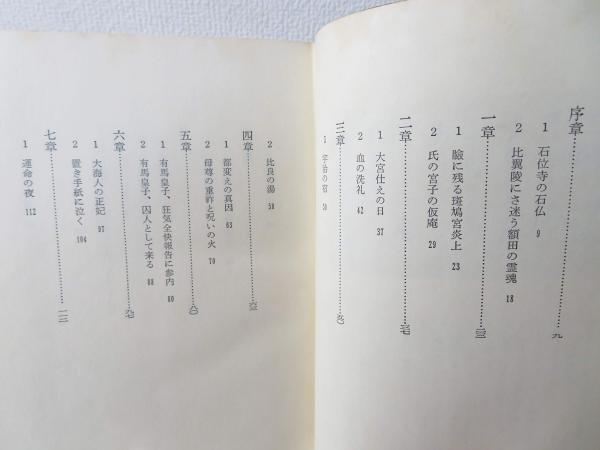 序章……………九
1 石位寺の石仏 9
2 比翼陵にさ迷う額田の霊魂 18
一章……………二三
1 瞼に残る斑鳩宮炎上 23
2 氏の宮子の仮庵 29
二章……………三七
1 大宮仕えの日 37
2 血の洗礼 42
三章……………五〇
1 宇治の宿 50
2 比良の湯 58
四章……………六三
1 都変えの真因 63
2 母尊の重祚と呪いの火 70
五章……………八〇
1 有馬皇子、狂気全快報告に参内 80
2 有馬皇子、囚人として来る 88
六章……………九七
1 大海人の正妃 97
2 置き手紙に泣く 104
七章……………一一二
1 運命の夜 112